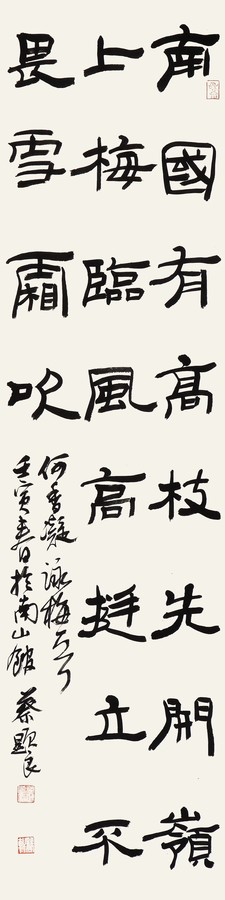 南國有高枝先開嶺
上梅臨風高挺立不
畏雪霜吹
何香凝詠梅一首
壬寅春日於南山館 蔡顯良